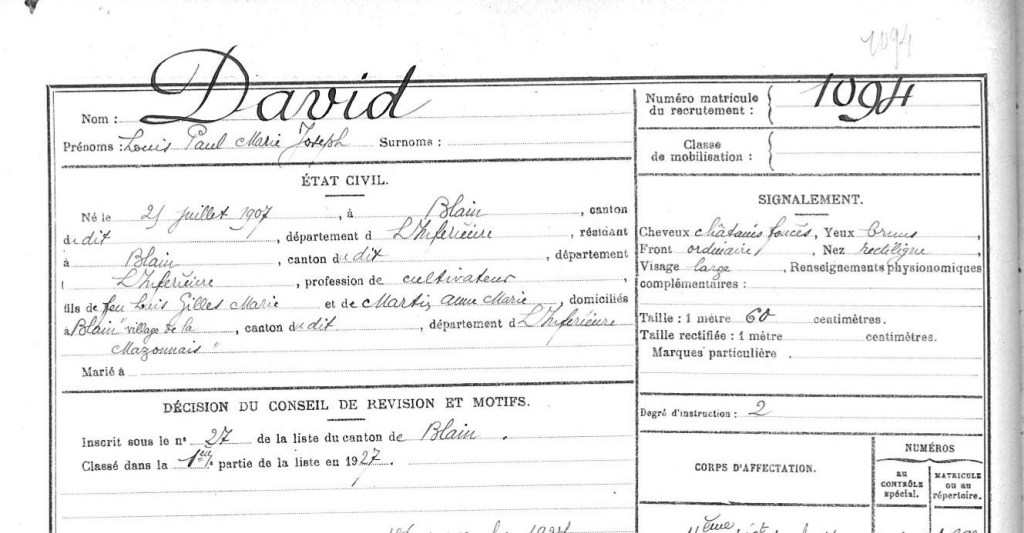 1094
David
Nom :
Prénoms : Louis Paul Marie Joseph Surnoms :
ÉTAT CIVIL.
Né le 25 juillet 1907, à Blain, canton
dudit, département d L'Inferieure, résidant
à Blain, canton dudit, département
L'Inferieure, profession de cultivateur,
fils de feu Louis Gilles Marie et de Martin Anne Marie, domiciliés
à Blain "village de la, canton dudit, département d L'Inferieure
Mazonnais"
Marié à
DÉCISION DU CONSEIL DE REVISION ET MOTIFS.
Inscrit sous le n° 27 de la liste du canton de Blain.
Classé dans la 1ère partie de la liste en 1927.
Numéro matricule
du recrutement : 1094
Classe
de mobilisation :
SIGNALEMENT.
Cheveux châtains foncés, Yeux bruns,
Front ordinaire, Nez rectiligne
Visage large, Renseignements physionomiques
complémentaires :
Taille : 1 mètre 60 centimètres.
Taille rectifiée : 1 mètre centimètres.
Marques particulière .
Degré d'instruction : 2
CORPS D'AFFECTATION.
NUMÉROS
AU
CONTRÔLE
spécial.
MATRICULE
OU AU
répertoire.